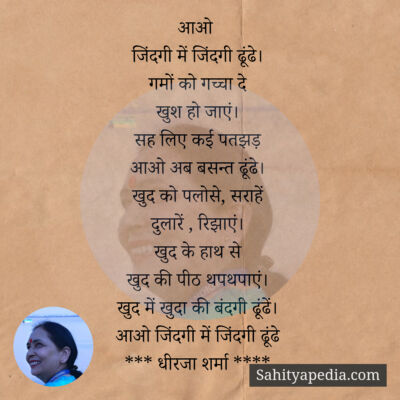 आओ
जिंदगी में जिंदगी ढूंढे।
गमों को गच्चा दे
खुश हो जाएं।
सह लिए कई पतझड़
आओ अब बसन्त ढूंढे।
खुद को पलोसे, सराहें
दुलारें , रिझाएं।
खुद के हाथ से
खुद की पीठ थपथपाएं।
खुद में खुदा की बंदगी ढूंढें।
आओ जिंदगी में जिंदगी ढूंढे
*** धीरजा शर्मा ****
Sahityapedia.com